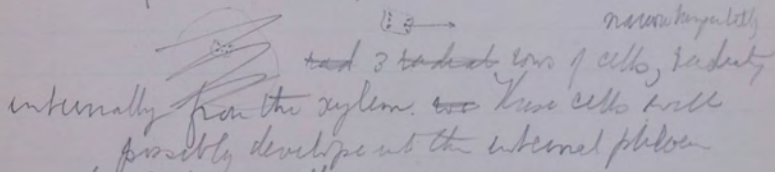 rad 3 radial rows of cells, radiating
internally from the xylem. These cells will
possibly develope into the internal phloem